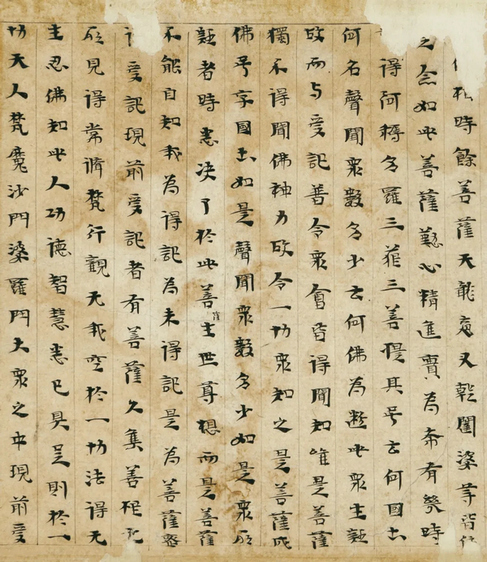 時餘菩薩天龍夜叉乾闥婆等皆作
之念如此菩薩懃心精進實為希有幾時
得阿耨多羅三藐三菩提其号云何國土
何名聲聞衆數多少云何佛為斷此衆生疑
故而与受記普令衆會皆得聞知唯是菩薩
獨不得聞佛神力故令一切衆知之是菩薩成
佛号字國土如是聲聞衆數多少如是衆所
疑者時悉决了於此菩薩生世尊想而是菩薩
不能自知我為得記為未得記是為菩薩密
受記現前受記者有菩薩久集善根无
所見得常脩梵行觀无我空於一切法得无
生忍佛知此人功德智慧悉已具足則於一
切天人梵魔沙門婆羅門大衆之中現前受